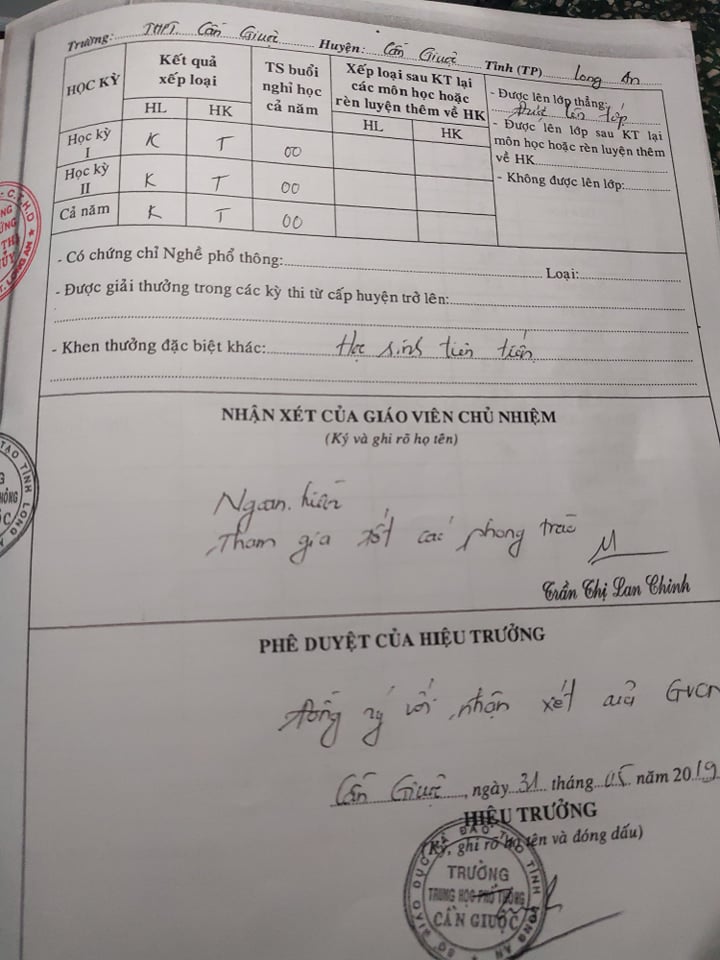 Trường: THPT. Cần Giuộc Huyện: Cần Giuộc Tỉnh (TP) Long An
HỌC KỲ
Kết quả xếp loại
TS buổi nghỉ học cả năm
Xếp loại sau KT lại các môn học hoặc rèn luyện thêm về HK
HL HK HL HK
Học kỳ I K T 00
Học kỳ II K T 00
Cả năm K T 00
- Được lên lớp thẳng:
Được lên lớp
- Được lên lớp sau KT lại
môn học hoặc rèn luyện thêm
về HK
- Không được lên lớp:
- Có chứng chỉ Nghề phổ thông: Loại:
- Được giải thưởng trong các kỳ thi từ cấp huyện trở lên:
- Khen thưởng đặc biệt khác: Học sinh tiên tiến
NHẬN XÉT CỦA GIÁO VIÊN CHỦ NHIỆM
(Ký và ghi rõ họ tên)
Ngoan. hiền
Tham gia tốt các phong trào
Trần Thị Lan Chinh
PHÊ DUYỆT CỦA HIỆU TRƯỞNG
Đồng ý với nhận xét của GVCN
Cần Giuộc, ngày 31 tháng 05 năm 2019
HIỆU TRƯỞNG
(Ký, ghi rõ họ tên và đóng dấu)
SỞ GIÁO DỤC VÀ ĐÀO TẠO TỈNH LONG AN
TRƯỜNG
TRUNG HỌC PHỔ THÔNG
CẦN GIUỘC